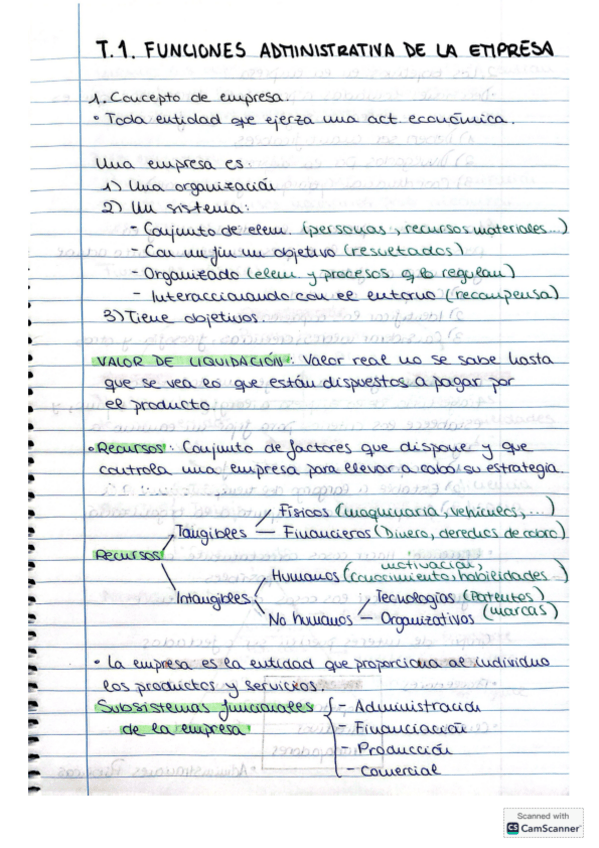 T.1. FUNCIONES ADMINISTRATIVA DE LA EMPRESA
1. Concepto de empresa.
• Toda entidad que ejerza una act. económica.
Una empresa es:
1) Una organización
2) Un sistema:
- Conjunto de elem. (personas, recursos materiales...)
- Con un fin un objetivo (resultados)
- Organizado (elem. y procesos q lo regulan)
- Interaccionando con el entorno (recompensa)
3) Tiene objetivos.
VALOR DE LIQUIDACIÓN: Valor real no se sabe hasta
que se vea lo que están dispuestos a pagar por
el producto.
• Recursos: Conjunto de factores que dispone y que
controla una empresa para llevar a cabo su estrategia.
Físicos (maquinaria, vehículos, ...)
Tangibles Financieros (Dinero, derechos de cobro)
Recursos
motivación,
Humanos (conocimiento, habilidades ...)
Intangibles Tecnologías (Patentes)
No humanos Organizativos (marcas)
• La empresa es la entidad que proporciona al individuo
los productos y servicios.
Subsistemas funcionales - Administración
de la empresa - Financiación
- Producción
- Comercial
Scanned with
CS CamScanner